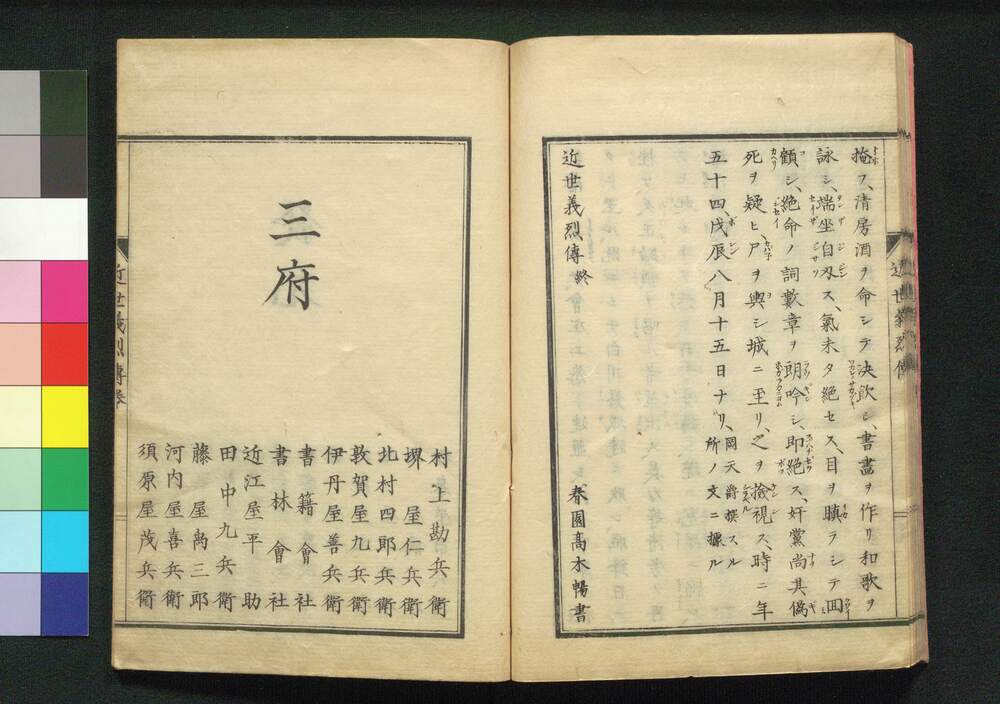 掩フ、清房酒ヲ命シテ決飲シ、書畫ヲ作リ和歌ヲ
詠シ、端坐自刃ス、氣未タ絶セス、目ヲ瞋ラシテ回
顧シ、絶命ノ詞數章ヲ朗吟シ、即絶ス、奸黨尚其僞
死ヲ疑ヒ、尸ヲ輿シ城ニ至リ、之ヲ撿視ス、時ニ年
五十四、戊辰八月十五日ナリ、岡天爵撰スル
所ノ文ニ據ル
近世義烈傳終
春園高木暢書
近世義烈傳
三府
村上勘兵衛
堺屋仁兵衛
北村四郎兵衛
敦賀屋九兵衛
伊丹屋善兵衛
書籍會社
書林會社
近江屋平助
田中九兵衛
藤屋禹三郎
河内屋喜兵衛
須原屋茂兵衛
近世義烈傳卷